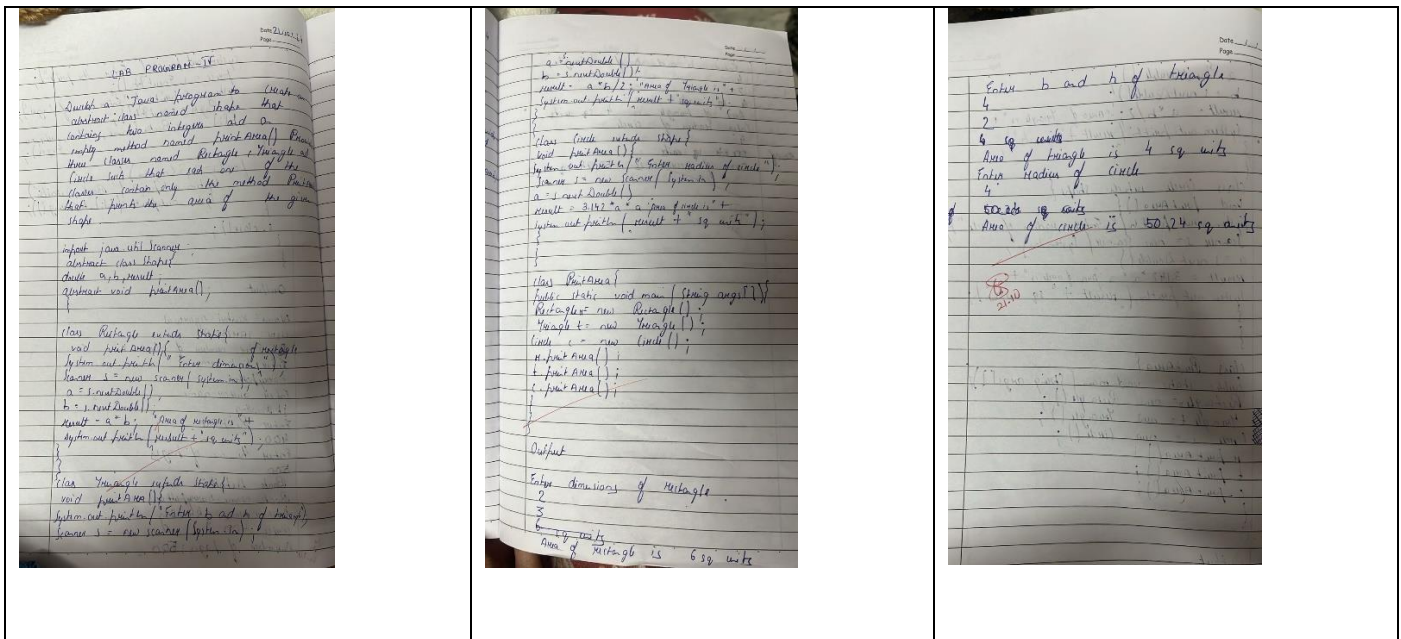 Date 21.10.24
Page
LAB PROGRAM-IV
Develop a Java program to create an
abstract class named shape that
contains two integers and an
empty method named printArea()
three classes named Rectangle, Triangle and
Circle such that each one of the
classes contain only the method
that prints the area of the given
shape
import java util Scanner
abstract class Shape{
double a, b, result;
abstract void printArea();
}
class Rectangle extends Shape{
void printArea(){
of rectangle
System.out.println(" Enter dimensions");
Scanner s = new scanner(System.in);
a = s.nextDouble();
b = s.nextDouble();
result = a * b; "Area of rectangle is" +
System.out.println(result + "sq units");
}
}
class Triangle extends Shape{
void printArea(){
System.out.println("Enter b and h of triangle");
Scanner s = new scanner(System.in);
Date
Page
a = s.nextDouble()
b = s.nextDouble();
result = a * b/2; "Area of Triangle is" +
System.out.println(result + "sq units");
}
}
class Circle extends Shape{
void printArea(){
System.out.println(" Enter radius of circle");
Scanner s = new Scanner(System.in);
a = s.nextDouble()
result = 3.142 * a * a "area of circle is" +
System.out.println(result + " sq units");
}
}
class PrintArea{
public static void main(String args[]){
Rectangle r = new Rectangle();
Triangle t = new Triangle();
Circle c = new Circle();
r.printArea();
t.printArea();
c.printArea();
}
}
Output
Enter dimensions of rectangle.
2
3
6 sq units
Area of rectangle is 6 sq units
Date
Page
Enter b and h of triangle
4
2
4 sq units
Area of triangle is 4 sq units
Enter radius of circle
4
sq units
Area of circle is 50.24 sq units
21.10